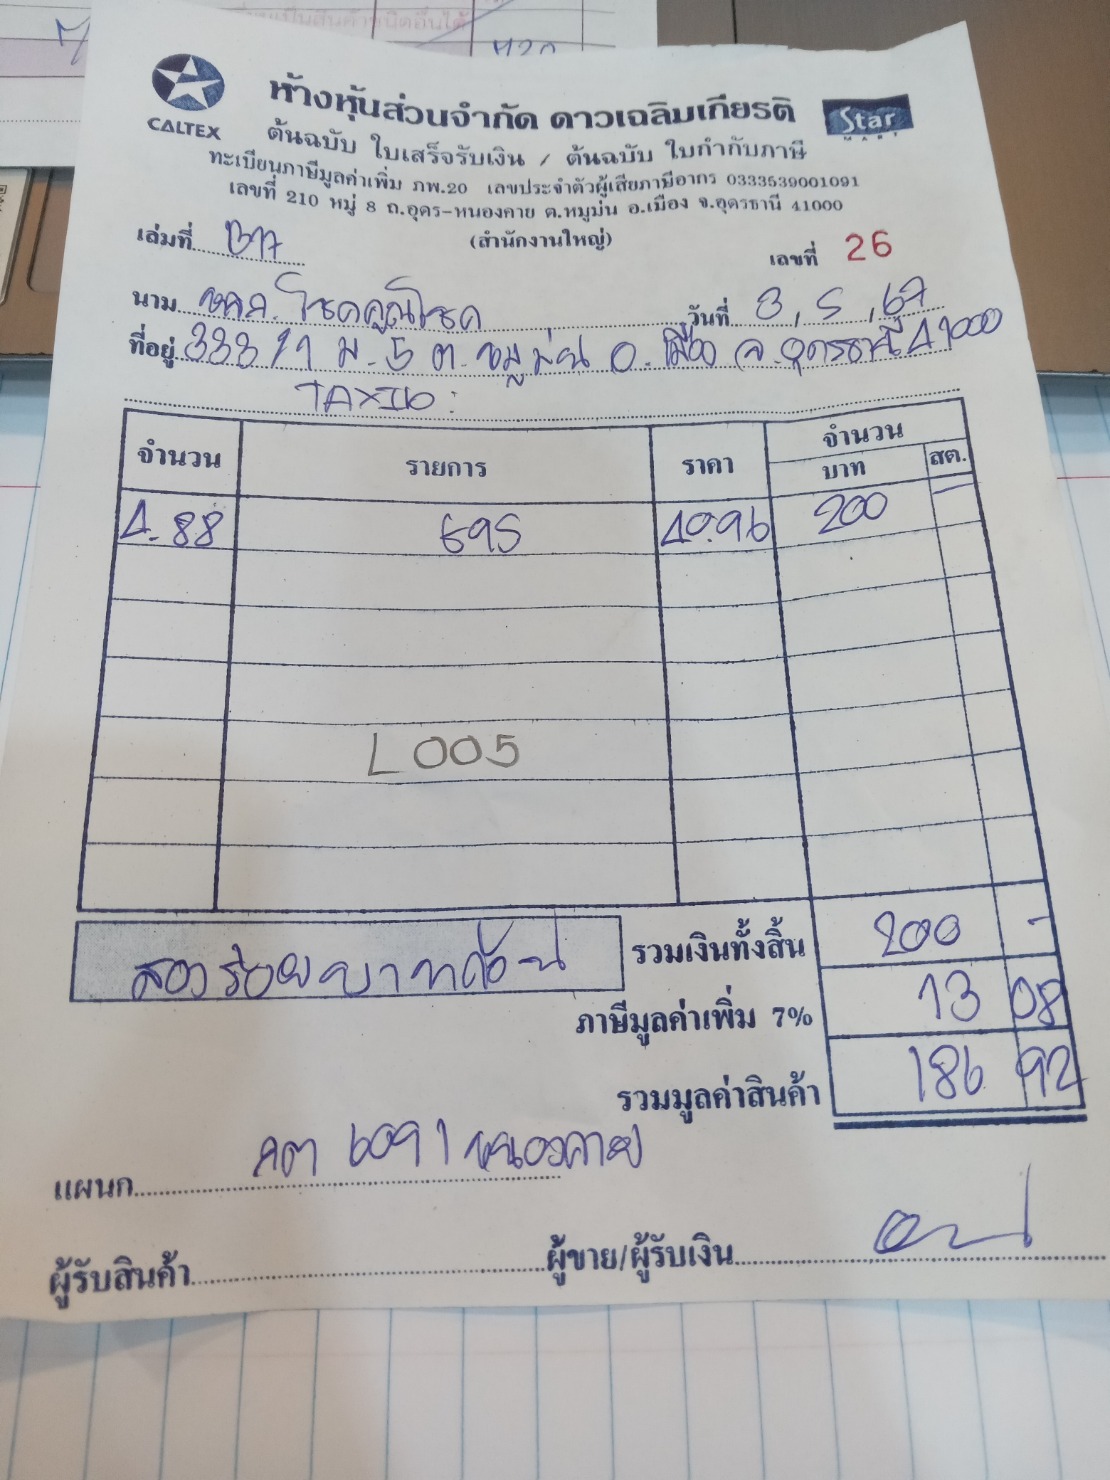 เป็นสินค้าชนิดอื่นได้
CALTEX
ห้างหุ้นส่วนจำกัด ดาวเฉลิมเกียรติ
Star
MART
ต้นฉบับ ใบเสร็จรับเงิน / ต้นฉบับ ใบกำกับภาษี
ทะเบียนภาษีมูลค่าเพิ่ม ภพ.20 เลขประจำตัวผู้เสียภาษีอากร 0333539001091
เลขที่ 210 หมู่ 8 ถ.อุดร-หนองคาย ต.หมูม่น อ.เมือง จ.อุดรธานี 41000
(สำนักงานใหญ่)
เล่มที่ B17 เลขที่ 26
นาม หจก. โชคคูณโชค วันที่ 3, 5, 67
ที่อยู่ 333/1 ม.5 ต.หมูม่น อ.เมือง จ.อุดรธานี 41000
TAXID:
จำนวน รายการ ราคา จำนวน
บาท สต.
4.88 E95 40.96 200 -
L005
สองร้อยบาทถ้วน รวมเงินทั้งสิ้น 200 -
ภาษีมูลค่าเพิ่ม 7% 13 08
รวมมูลค่าสินค้า 186 92
แผนก 6091 หนองคาย
ผู้รับสินค้า ผู้ขาย/ผู้รับเงิน